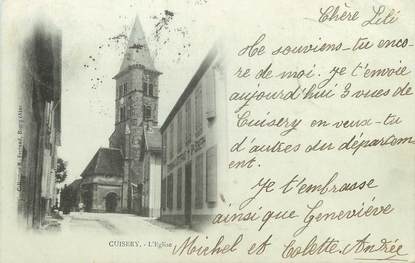 Chère Lili
Te souviens-tu enco-
re de moi. Je t'envoie
aujourd'hui 3 vues de
Cuisery en veux-tu
d'autres du départem
ent.
Je t'embrasse
ainsi que Geneviève
Michel et Colette. Andrée
CUISERY. - L'Eglise
Collection Ferrand, Bourg (Ain)